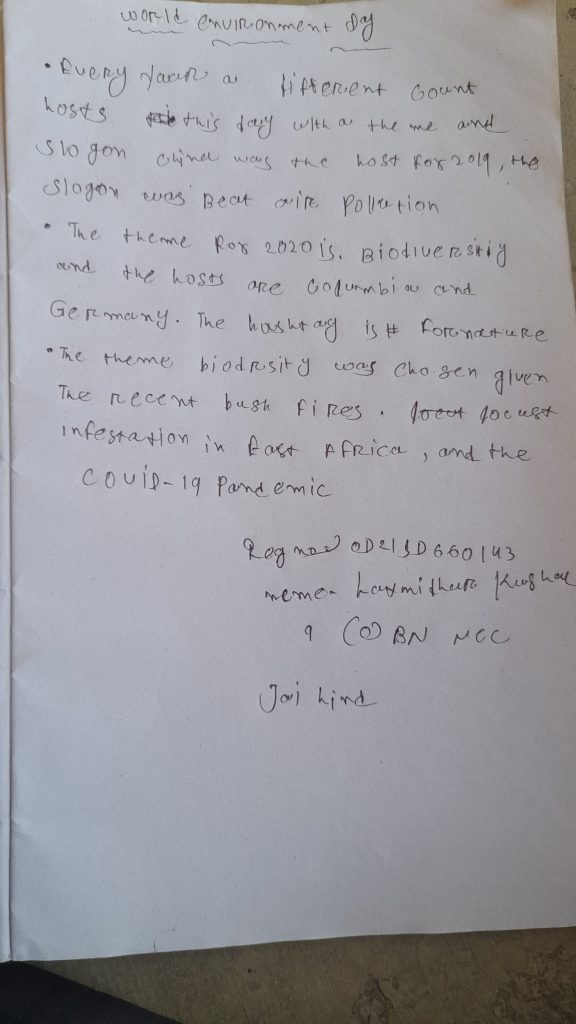 world environment Day
• Every Yaar a different Count
hosts this day with a the me and
Slogon China was the host for 2019, the
Slogon was Beat aire Pollution
• The theme for 2020 is. Biodiversitiy
and the hosts are Columbia and
Germany. The hashtag is # Fornature
• The theme biodrsity was cho sen given
The recent bush fires. locust
infestation in East Africa, and the
COVID-19 Pandemic
Reg no OD21SD660143
neme- Laxmithara Kushal
9 (O) BN NCC
Jai hind